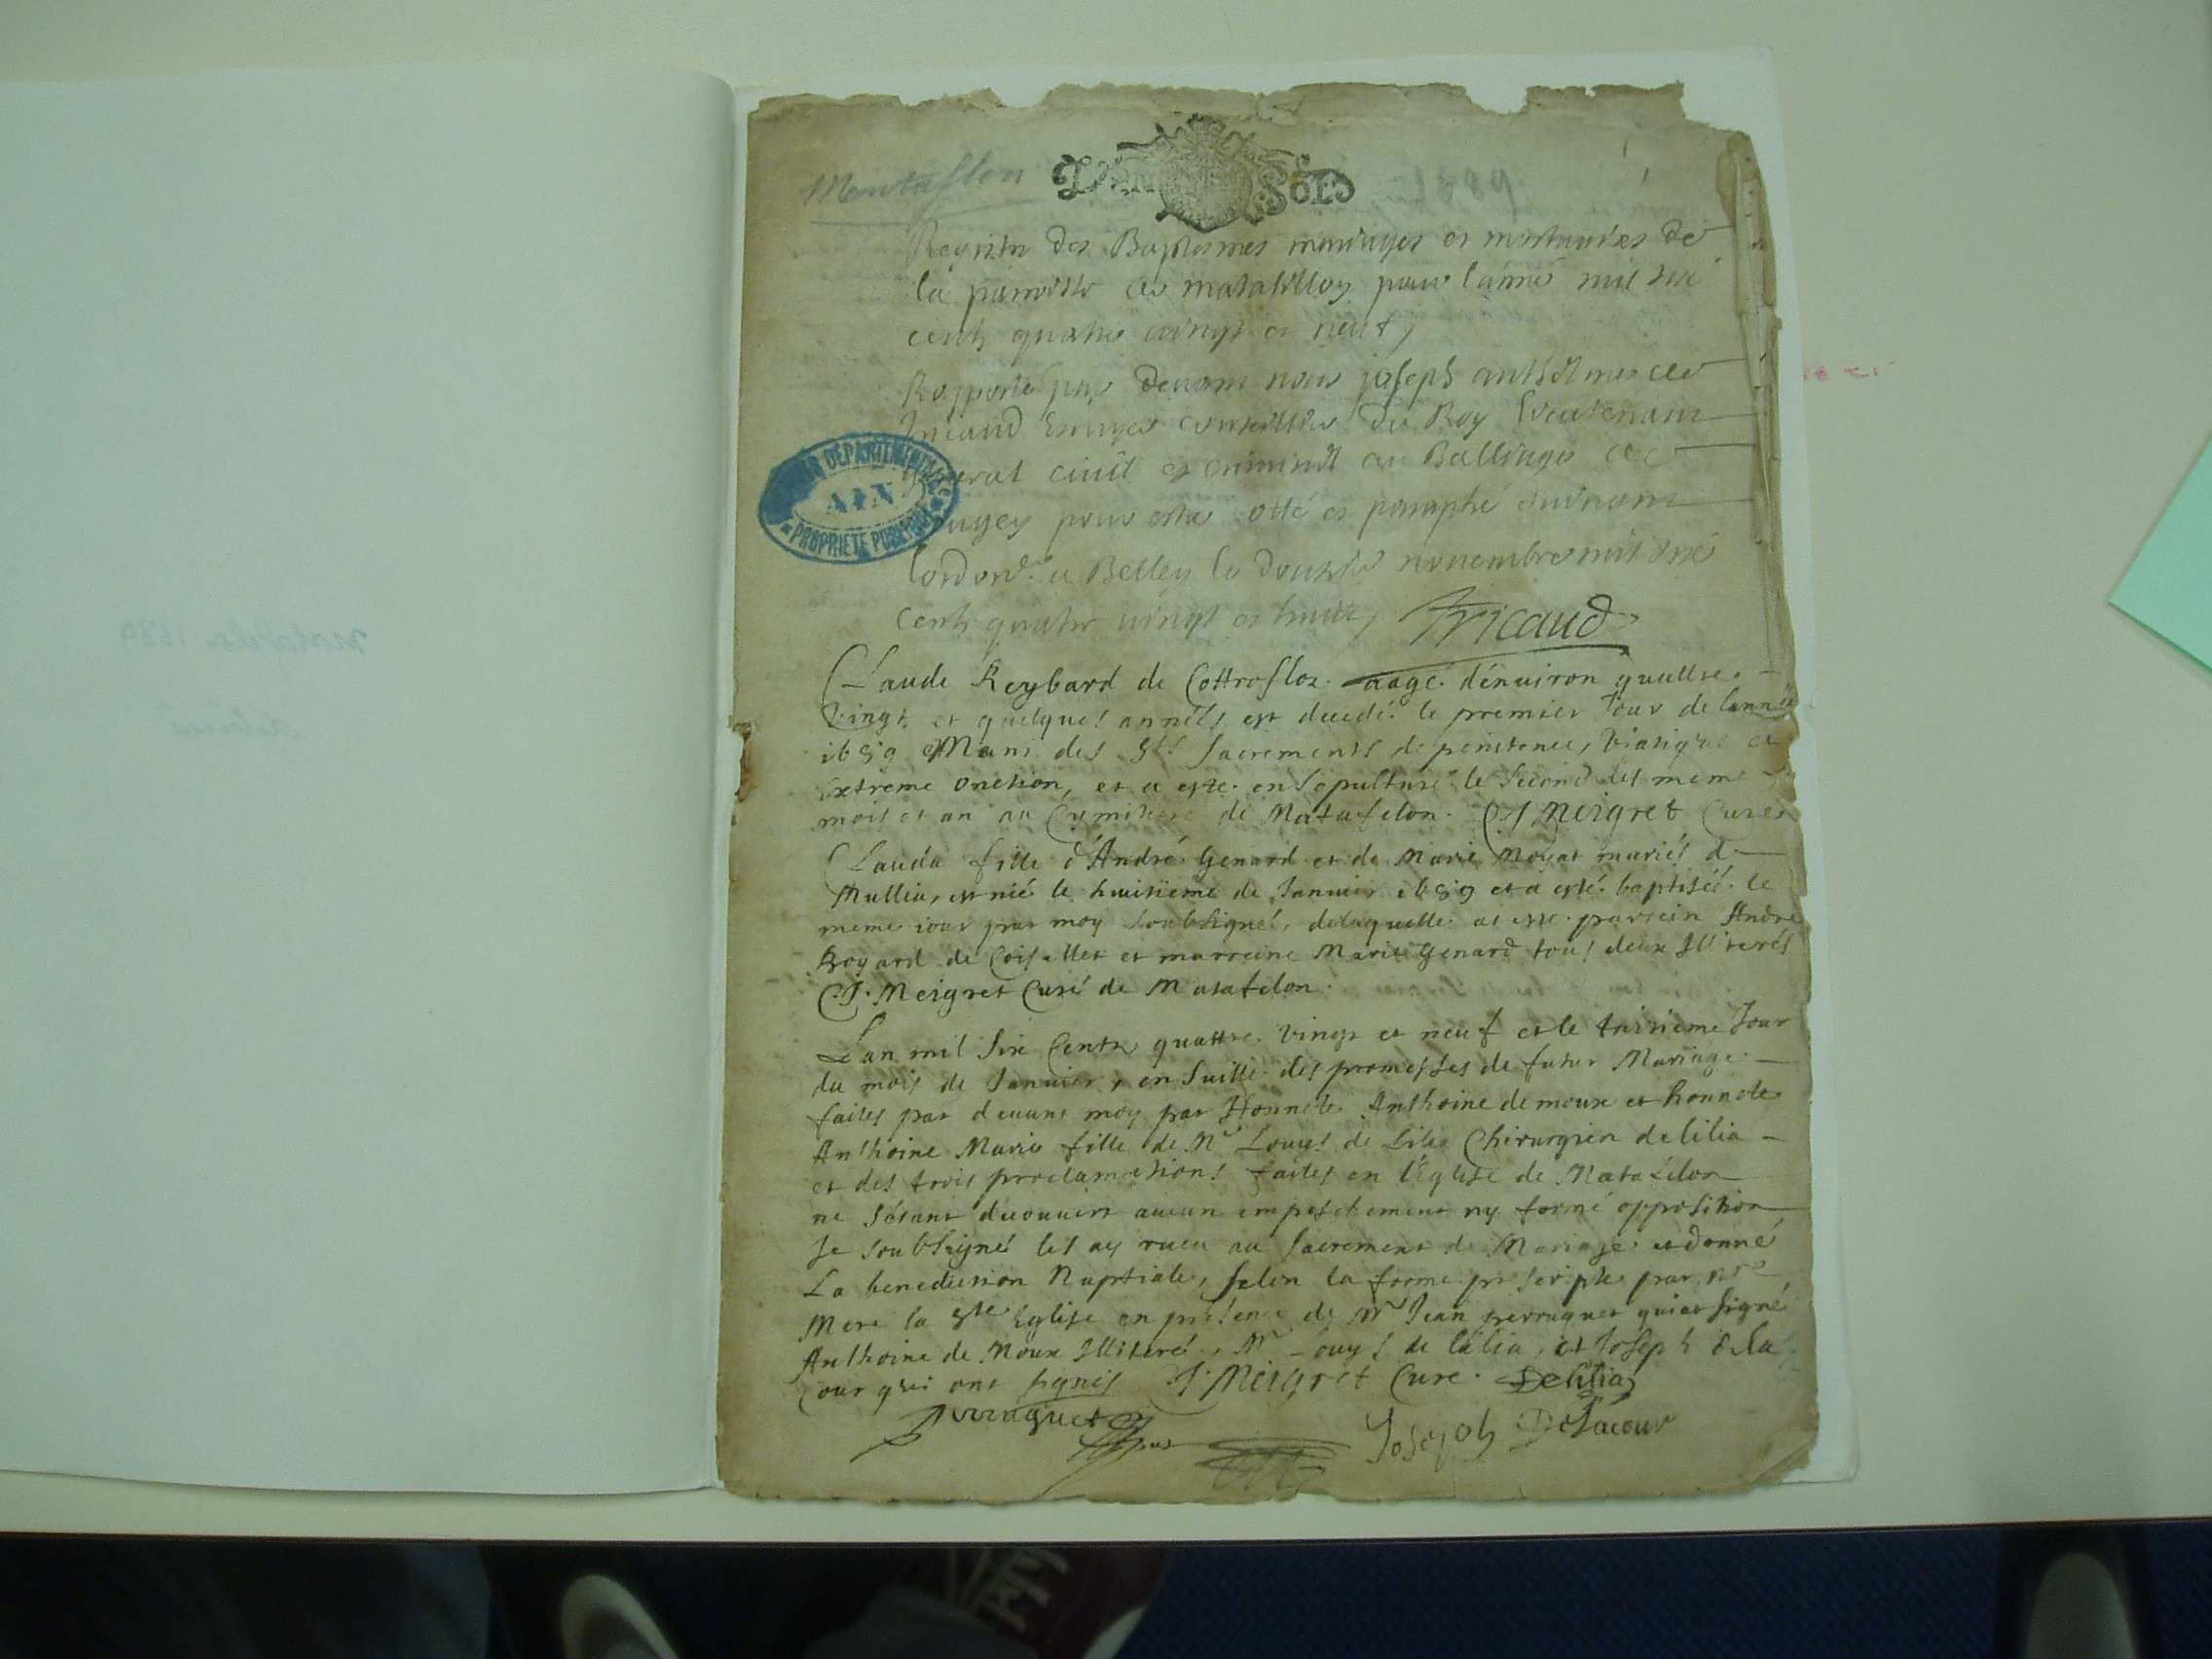 Montaflon
1689
Registre des Baptesmes mariages et mortuaires de
la parroisse de matafellon pour l'année mil six
cents quatre vingt et neuf
Rapporté par devant nous joseph anthelmes de
Tricaud Escuyer conseiller du Roy lieutenant
general civil et criminel au Balliage de
Bugey pour estre cotté et paraphé suivant
l'ordonce a Belley le douzie novembre mil six
cents quatre vingt et huict Tricaud
ARCHIVES DEPARTEMENTALES
AIN
PROPRIETE PUBLIQUE
Claude Reybard de Cottrofloz aagé d'enuiron quattre
vingt et quelques années est decedé le premier Jour de l'année
1689 Muni des Sts Sacrements de penitence, viatique et
Extreme onction, et a esté ensepulturé le second des meme
mois et an au Cymitiere de Matafelon. CJ Meigret Curé
Clauda fille d'André Genard et de Marie Moyat mariés de
Mullia, est née le huitieme de Januier 1689 et a esté baptisée le
meme iour par moy soubsigné, delaquelle at esté parrein André
Bogard de Coisellet et marreine Marie Genard tous deux Illiterés
C.J. Meigret Curé de Matafelon.
L'an mil six Cents quattre vingt et neuf et le treisieme Jour
du mois de Januier, en suitte des promesses de futur Mariage
faites par deuant moy par Honnete Anthoine demoux et honnete
Anthoine Marie fille de Mr Louys de Lilia Chirurgien de lilia
et des trois proclamations faites en l'Eglise de Matafelon
ne s'etant decouuert aucun empeschement ny formé opposition
Je soubsigné les ay receu au sacrement de Mariage et donné
La benediction Nuptiale, selon la forme prescripte par nre
Mere la Ste Eglise en presence de Mr Jean perruquet qui at signé
Anthoine de Moux Illiteré, Mr Louys de lilia, et Joseph de la
Cour qui ont signés J. Meigret Curé. Delilia
perruquet
Joseph Delacour